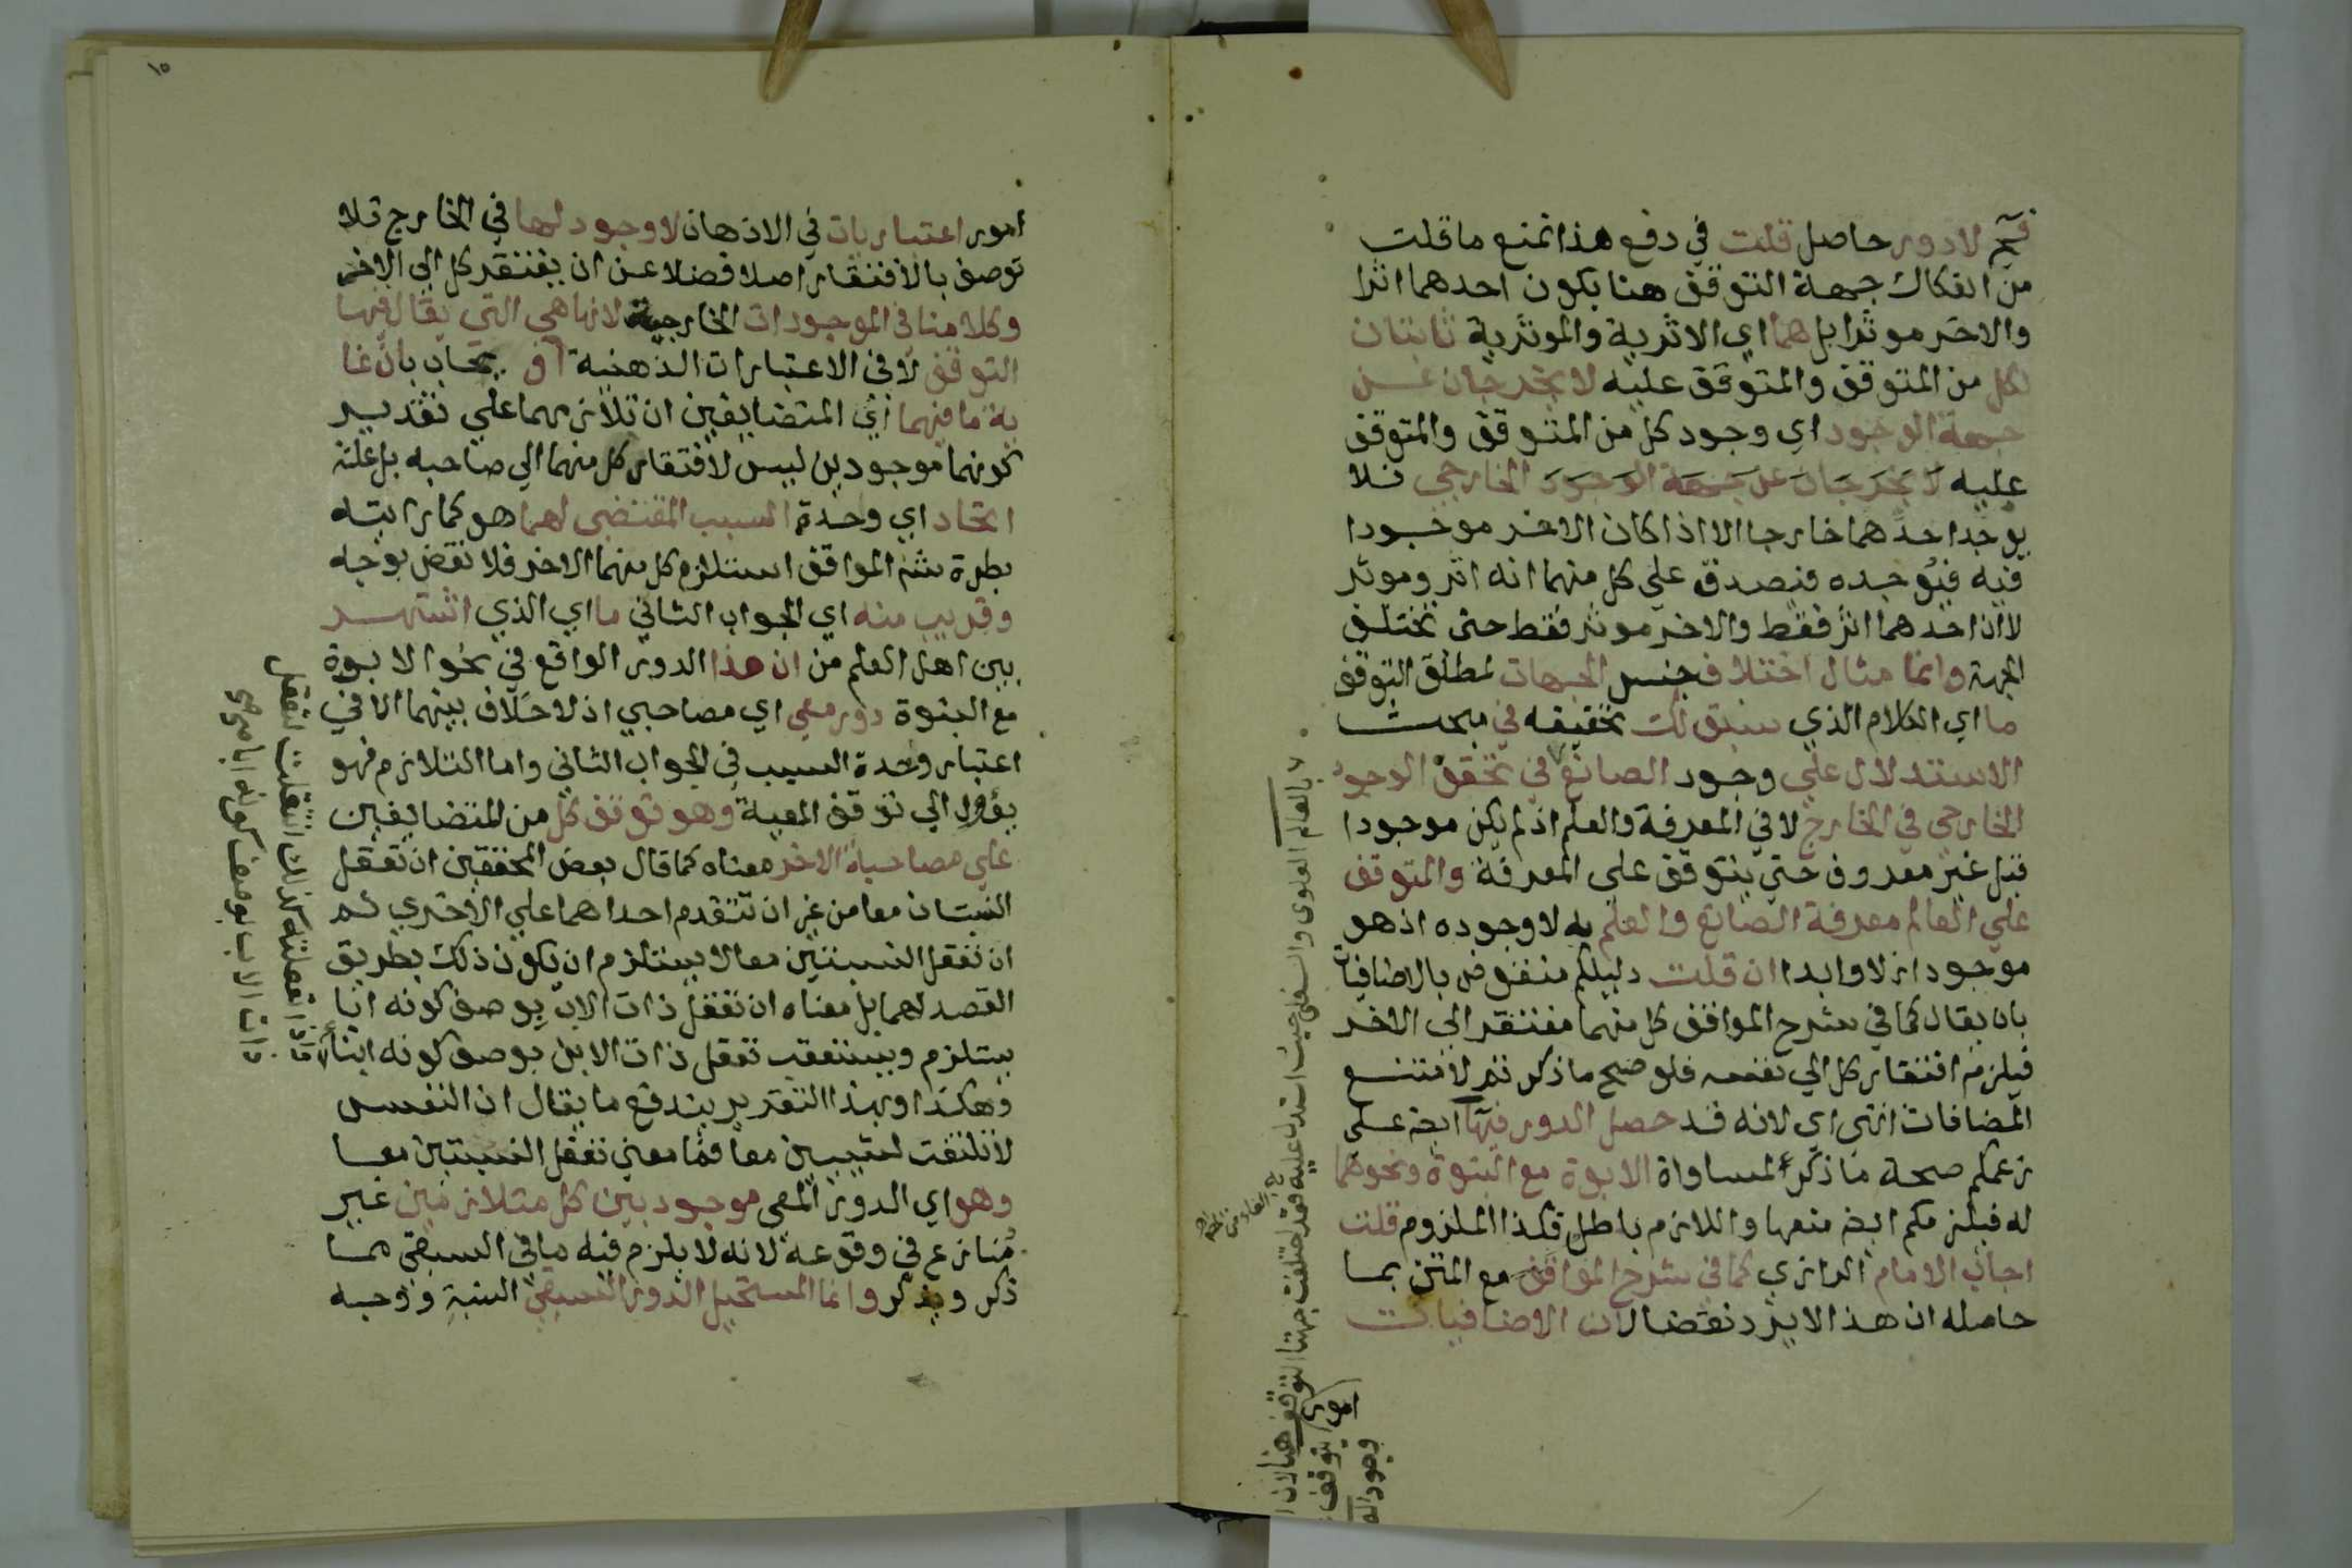 فثم لا دور حاصل قلت في دفع هذا نمنع ما قلت
من انفكاك جهة التوقف هنا بكون احدهما اثرا
والاخر موثرا بل هما اي الاثرية والموثرية ثابتان
لكل من المتوقف والمتوقف عليه لا يخرجان عن
جهة الوجود اي وجود كل من المتوقف والمتوقف
عليه لا يخرجان عن جهة الوجود الخارجي فلا
يوجد احدهما خارجا الا اذا كان الاخر موجودا
فيه فيوجده فيصدق على كل منهما انه اثر وموثر
لا ان احدهما اثر فقط والاخر موثر فقط حتى تختلف
الجهة وانما مثال اختلاف جنس الجهات لمطلق التوقف
ما اي الكلام الذي سبق لك تحقيقه في مبحث
الاستدلال علي وجود الصانع في تحقق الوجود
الخارجي في الخارج لا في المعرفة والعلم اذ لم يكن موجودا
قبل غير معروف حتي يتوقف على المعرفة والمتوقف
علي العالم معرفة الصانع والعلم به لا وجوده اذ هو
موجود ازلا وابدا ان قلت دليلكم منقوض بالاضافيات
بان يقال كما في شرح المواقف كل منهما مفتقر الى الاخر
فيلزم افتقار كل الي نفسه فلو صح ما ذكرتم لامتنع
المضافات انتهى اي لانه قد حصل الدور فيها ايضا على
زعمكم صحة ما ذكر لمساواة الابوة مع البنوة ونحوهما
له فيلزمكم ايضا منعها واللازم باطل فكذا الملزوم قلت
اجاب الامام الرازي كما في شرح المواقف مع المتن بما
حاصله ان هذا لا يرد نقضا لان الاضافيات
بالعالم العلوي والسفلي حيث استدل عليه فقد اختلفت جهتا التوقف هنا لان
يتوقف
وجود
امور اعتباريات في الاذهان لا وجود لها في الخارج فلا
توصف بالافتقار اصلا فضلا عن ان يفتقر كل الي الاخر
وكلامنا في الموجودات الخارجية لانها هي التي يقال فيها
التوقف لا في الاعتبارات الذهنية او يجاب بان غا
ية ما فيهما اي المتضايفين ان تلازمهما علي تقدير
كونهما موجودين ليس لافتقار كل منهما الي صاحبه بل علته
اتحاد اي وحدة السبب المقتضي لهما هو كما رايته
بطرة شرح المواقف استلزم كل منهما الاخر فلا نقض بوجه
وقريب منه اي الجواب الثاني ما اي الذي اشتهر
بين اهل العلم من ان هذا الدور الواقع في نحو الابوة
مع البنوة دور معي اي مصاحبي اذ لا خلاف بينهما الا في
اعتبار وحدة السبب في الجواب الثاني واما التلازم فهو
يؤول الي توقف المعية وهو توقف كل من المتضايفين
علي مصاحبة الاخر معناه كما قال بعض المحققين ان تعقل
النسبتان معا من غير ان تتقدم احداهما علي الاخري ثم
ان تعقل النسبتين معا لا يستلزم ان يكون ذلك بطريق
القصد لهما بل معناه ان تعقل ذات الاب بوصف كونه ابا
يستلزم ويستعقب تعقل ذات الابن بوصف كونه ابنا
وهكذا وبهذا التقرير يندفع ما يقال ان النفس
لا تلتفت لشيين معا فما معني تعقل النسبتين معا
وهو اي الدور المعي موجود بين كل متلازمين غير
منازع في وقوعه لانه لا يلزم فيه ما في السبقي مما
ذكر ويذكر وانما المستحيل الدور السبقي البتة ووجه
ذات الاب بوصف كونه ابا
١٥